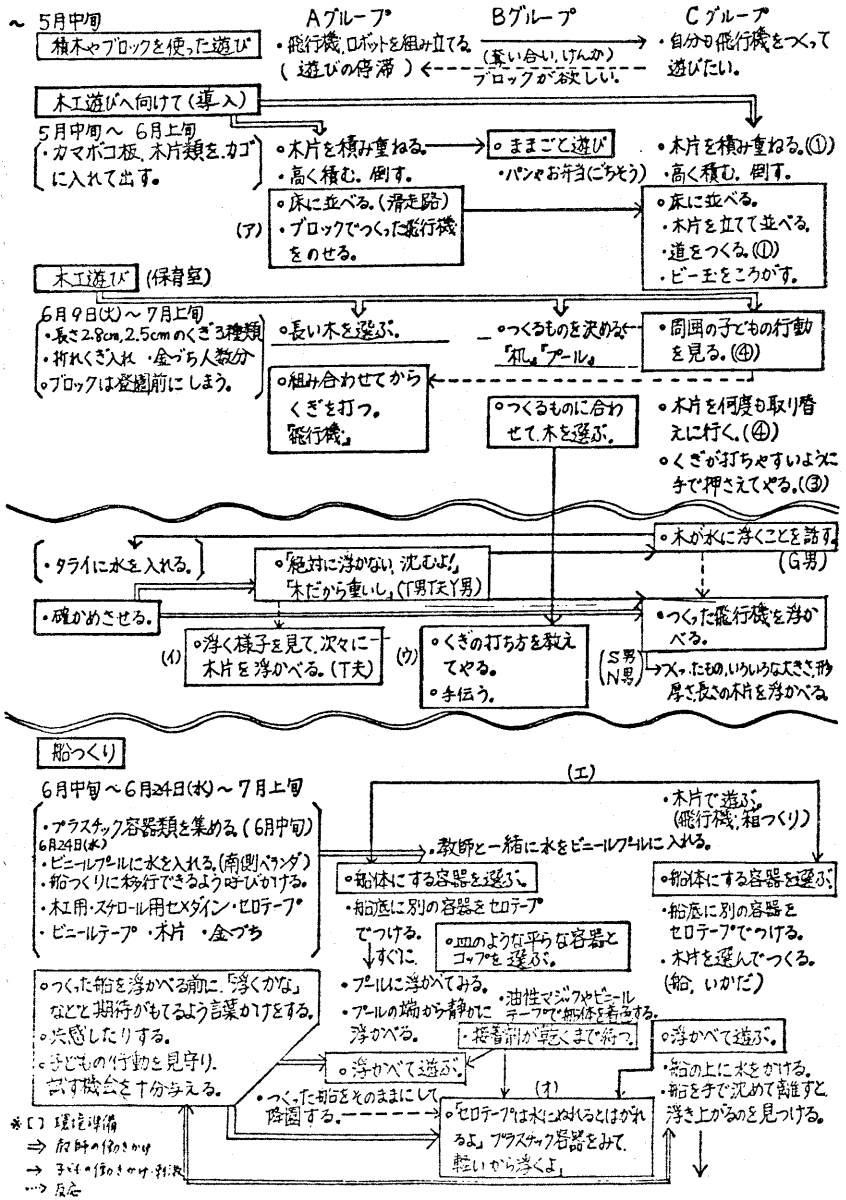 ～ 5月中旬
Aグループ
Bグループ
Cグループ
積木やブロックを使った遊び
・飛行機、ロボットを組み立てる
(遊びの停滞)
(奪い合い、けんか)
ブロックが欲しい。
・自分も飛行機をつくって
遊びたい。
木工遊びへ向けて(導入)
5月中旬～6月上旬
・カマボコ板、木片類を、カゴ
に入れて出す。
○木片を積み重ねる。
・高く積む、倒す。
○ままごと遊び
・パンやお弁当(ごちそう)
○木片を積み重ねる。(①)
・高く積む、倒す。
(ア)
○床に並べる。(滑走路)
・ブロックでつくった飛行機
をのせる。
○床に並べる。
・木片を立てて並べる。
・道をつくる。(①)
・ビー玉をころがす。
木工遊び (保育室)
6月9日(火)～7月上旬
・長さ2.8cm, 2.5cmのくぎ3種類
・折れくぎ入れ ・金づち人数分
○ブロックは登園前にしまう。
○長い木を選ぶ。
・つくるものを決める。
『机』『プール』
○周囲の子どもの行動
を見る。(④)
○組み合わせてから
くぎを打つ。
『飛行機』
○つくるものに合わ
せて、木を選ぶ。
○木片を何度も取り替
えに行く。(④)
○くぎが打ちやすいように
手で押さえてやる。(③)
・タライに水を入れる。
○「絶対に浮かない、沈むよ!」
「木だから重いし」(T男T夫Y男)
○木が水に浮くことを話す。
(G男)
・確かめさせる。
○つくった飛行機を浮か
べる。
(イ)
○浮く様子を見て、次々に
木片を浮かべる。(T夫)
(ウ)
○くぎの打ち方を教え
てやる。
○手伝う。
(S男
N男)
つくったもの、いろいろな大きさ、形
厚さ、長さの木片を浮かべる。
船つくり
(エ)
6月中旬～6月24日(水)～7月上旬
・プラスチック容器類を集める(6月中旬)
6月24日(水)
・ビニールプールに水を入れる。(南側ベランダ)
・船つくりに移行できるよう呼びかける。
・木工用・スチロール用セメダイン・セロテープ
・ビニールテープ ・木片 ・金づち
・教師と一緒に水をビニールプールに入れる。
・木片で遊ぶ。
(飛行機、箱つくり)
○船体にする容器を選ぶ。
・船底に別の容器をセロテープ
でつける。
すぐに
・プールに浮かべてみる。
・プールの端から静かに
浮かべる。
○皿のような平らな容器と
コップを選ぶ。
・油性マジックやビニール
テープで船体を着色する。
・接着剤が乾くまで待つ。
○船体にする容器を選ぶ。
・船底に別の容器を
セロテープでつける。
・木片を選んでつくる。
(船、いかだ)
○つくった船を浮かべる前に、「浮くかな」
などと期待がもてるよう言葉かけをする。
○共感したりする。
○子どもの行動を見守り、
試す機会を十分与える。
○浮かべて遊ぶ。
・つくった船をそのままにして
降園する。
(オ)
○「セロテープは水にぬれるとはがれ
るよ」プラスチック容器をみて、
軽いから浮くよ」
○浮かべて遊ぶ。
・船の上に水をかける。
・船を手で沈めて離すと、
浮き上がるのを見つける。
※〔 〕環境準備
⇒ 教師の働きかけ
→ 子どもの働きかけ・刺激
…> 反応